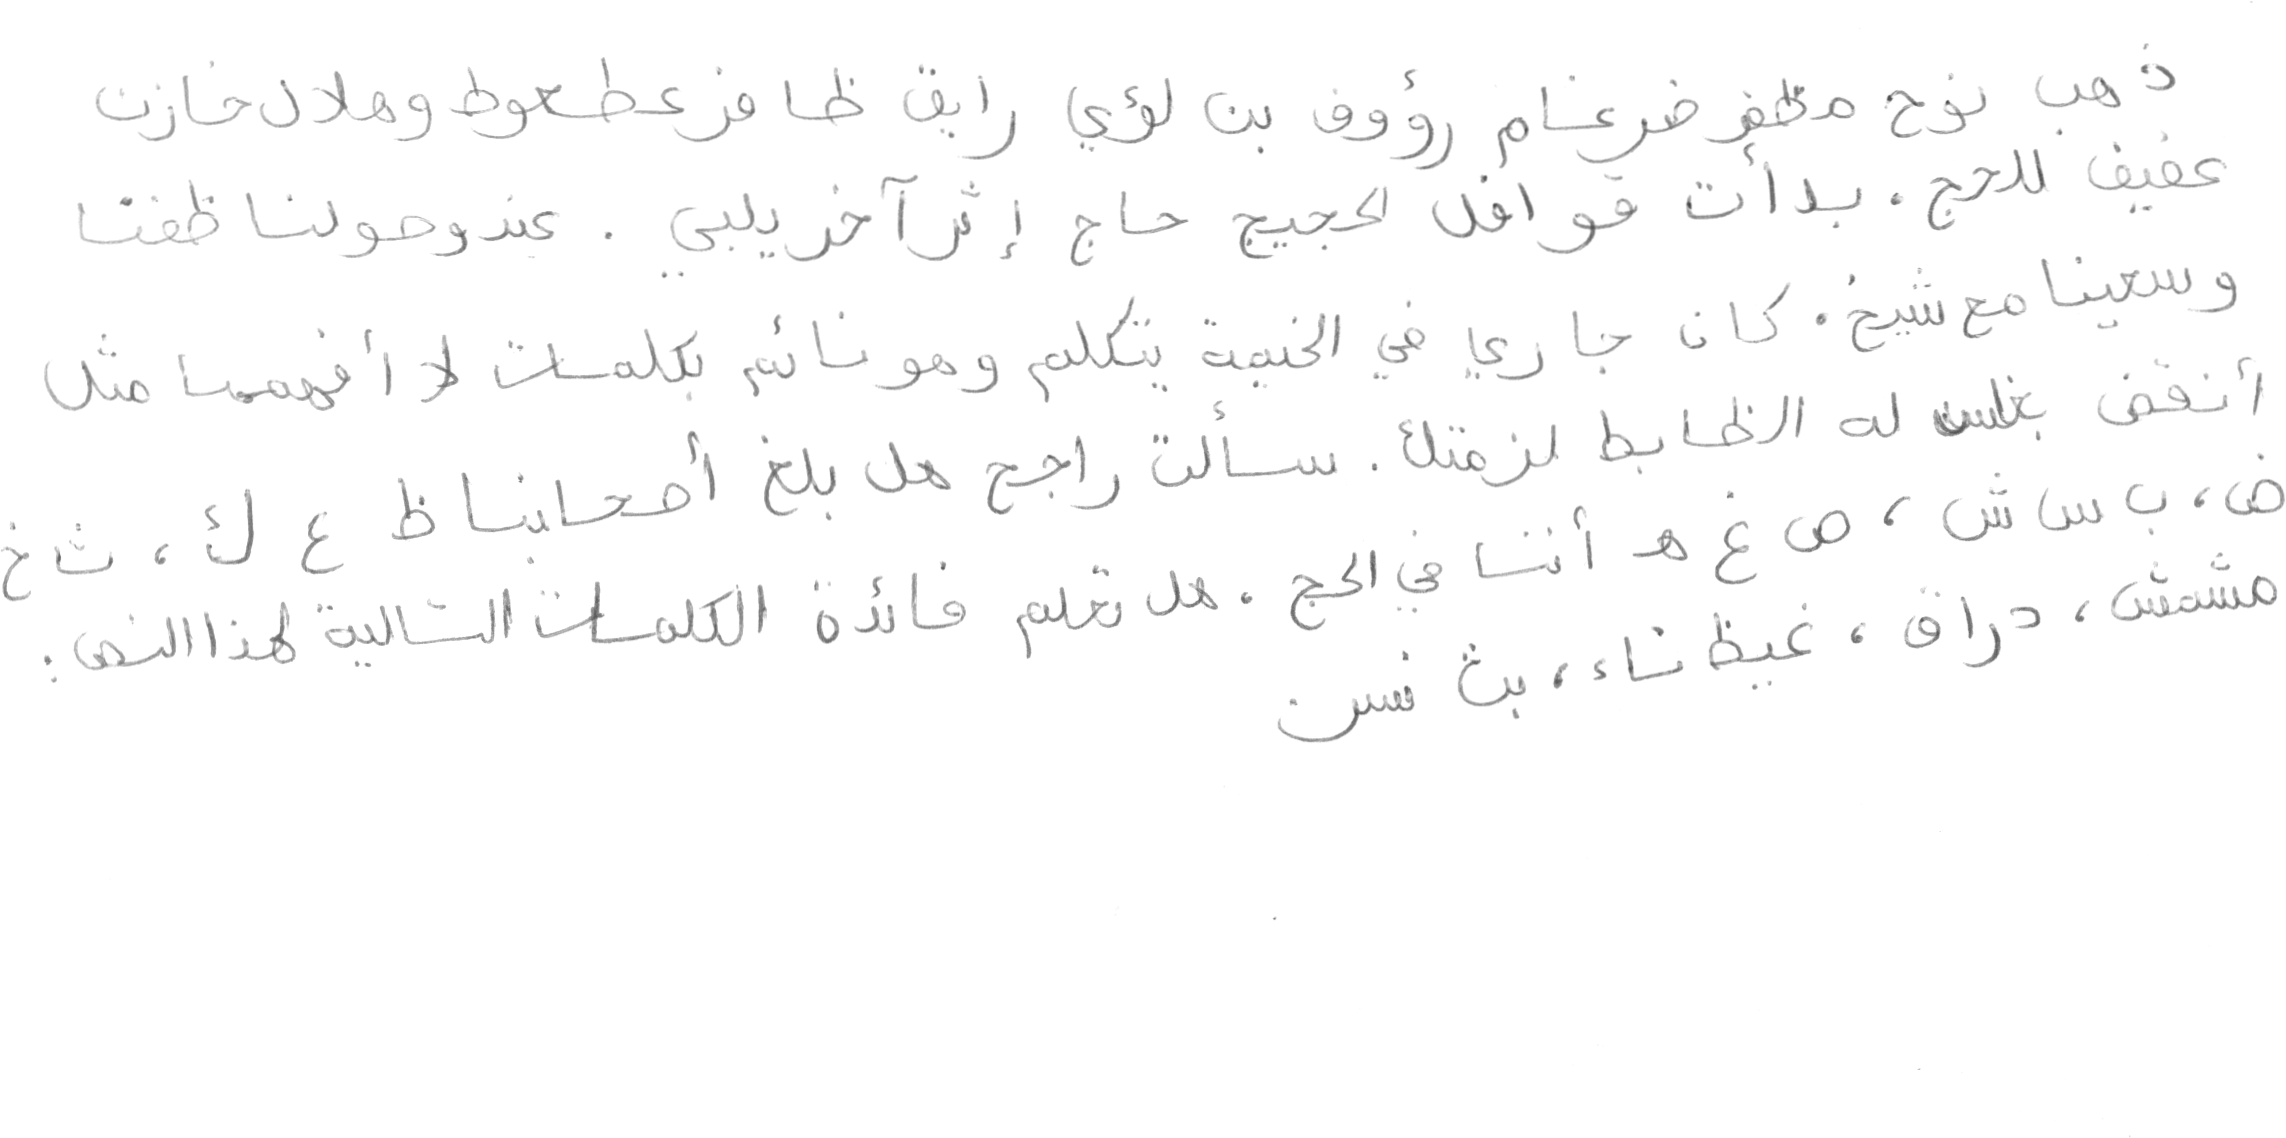 ذهب نوح مظفر ضرغام رؤوف بن لؤي رايق ظافر عطعوط وهلال خازن
عفيف للحج. بدأت قوافل الحجيج حاج إثر آخر يلبي. عند وصولنا طفنا
وسعينا مع شيخ. كان جاري في الخيمة يتكلم وهو نائم بكلمات لا أفهمها مثل
أنقض بغلس له الظابط لزمتك. سألت راجح هل بلغ أصحابنا ظ ع ك، ث خ
ض، ب س ش، ص غ هـ أننا في الحج. هل تعلم فائدة الكلمات التالية لهذا النص:
مشمش، دراق، غيظ ناء، بث